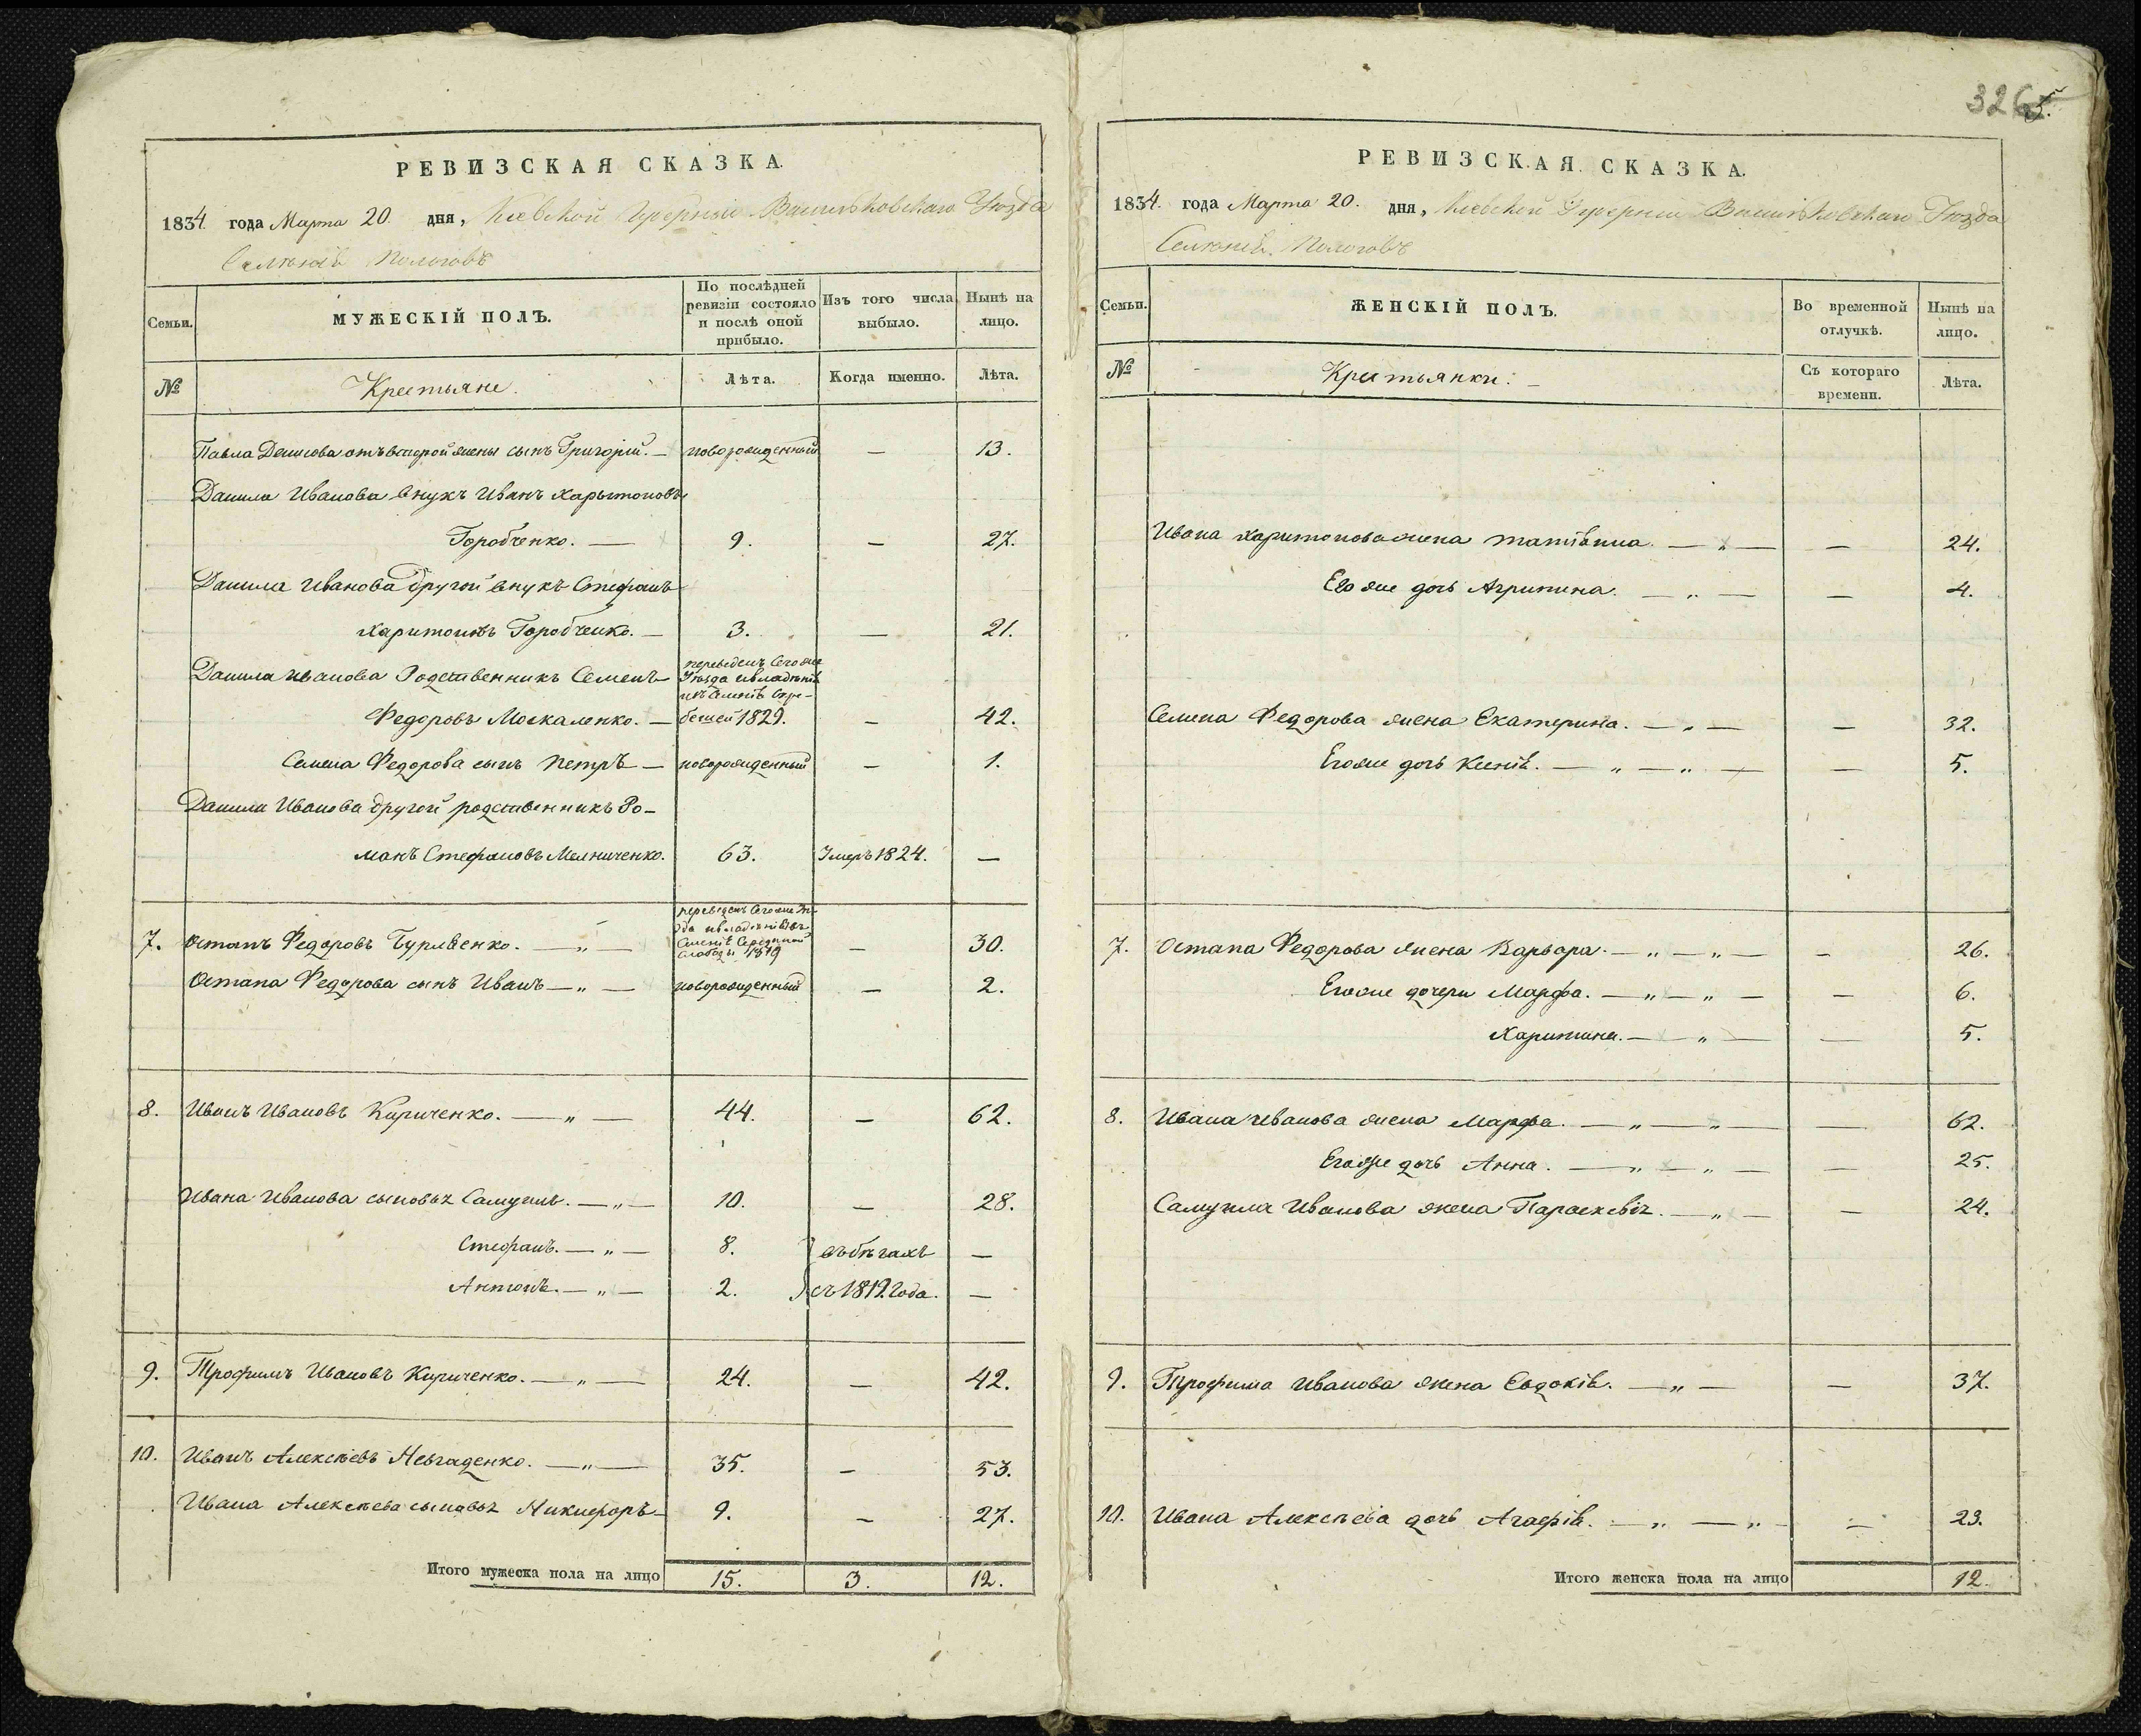 326
5.
РЕВИЗСКАЯ СКАЗКА.
1834 года Марта 20. дня, Кіевской Губерніи Васильковскаго Уѣзда
Селеній Пологовъ
Семьи.
МУЖЕСКІЙ ПОЛЪ.
По послѣдней ревизіи состояло и послѣ оной прибыло.
Изъ того числа выбыло.
Нынѣ на лицо.
№
Крестьяне.
Лѣта.
Когда именно.
Лѣта.
Павла Денисова отъ второй жены сынъ Григорій. — новорожденный — 13.
Данила Иванова внукъ Иванъ Харытоновъ
Горобченко. — 9. — 27.
Данила Иванова другой внукъ Стефанъ
Харитоновъ Горобченко. — 3. — 21.
Данила Иванова Родственникъ Семенъ переведенъ сегоже
Уѣзда
Федоровъ Москаленко. — 1829. — 42.
Семена Федорова сынъ Петръ — новорожденный — 1.
Данила Иванова другой родственникъ Ро-
манъ Стефановъ Мелниченко. 63. Умеръ 1824. —
переведенъ сегоже Уѣ-
зда
7. Остапъ Федоровъ — „ — — 30.
Слободы 1819
Остапа Федорова сынъ Иванъ — „ — новорожденный — 2.
8. Иванъ Ивановъ Кириченко. — „ — 44. — 62.
Ивана Иванова сыновья Самуилъ. — „ — 10. — 28.
Стефанъ. — „ — 8. въ бѣгахъ —
Антонъ. — „ — 2. съ 1819 года. —
9. Трофимъ Ивановъ Кириченко. — „ — 24. — 42.
10. Иванъ Алексѣевъ — „ — 35. — 53.
Ивана Алексѣева сыновья Никифоръ — 9. — 27.
Итого мужеска пола на лицо 15. 3. 12.
РЕВИЗСКАЯ СКАЗКА.
1834. года Марта 20. дня, Кіевской Губерніи Васильковскаго Уѣзда
Селеній Пологовъ
Семьи.
ЖЕНСКІЙ ПОЛЪ.
Во временной отлучкѣ.
Нынѣ на лицо.
№
Крестьянки.
Съ котораго времени.
Лѣта.
Ивана Харитонова жена Татіанна. — „ — — 24.
Его же дочь Агрипина. — „ — — 4.
Семена Федорова жена Екатерина. — „ — — 32.
Егоже дочь Ксенія. — „ — „ — — 5.
7. Остапа Федорова жена Варвара. — „ — „ — — 26.
Егоже дочери Марфа. — „ — „ — — 6.
Харитина. — „ — — 5.
8. Ивана Иванова жена Марфа. — „ — „ — — 62.
Егоже дочь Анна. — „ — „ — — 25.
Самуила Иванова жена Параскевія. — „ — — 24.
9. Трофима Иванова жена Евдокія. — „ — — 37.
10. Ивана Алексѣева дочь Агафія. — „ — „ — — 23.
Итого женска пола на лицо 12.